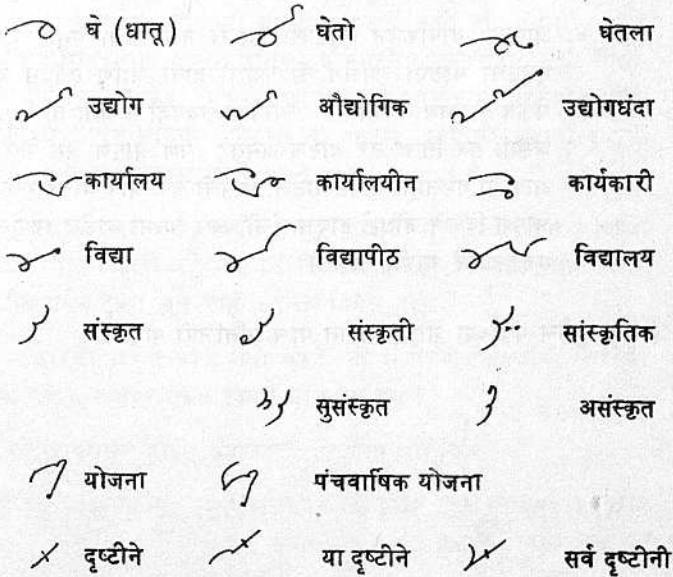 घे (धातू) घेतो घेतला
उद्योग औद्योगिक उद्योगधंदा
कार्यालय कार्यालयीन कार्यकारी
विद्या विद्यापीठ विद्यालय
संस्कृत संस्कृती सांस्कृतिक
सुसंस्कृत असंस्कृत
योजना पंचवार्षिक योजना
दृष्टीने या दृष्टीने सर्व दृष्टीनी